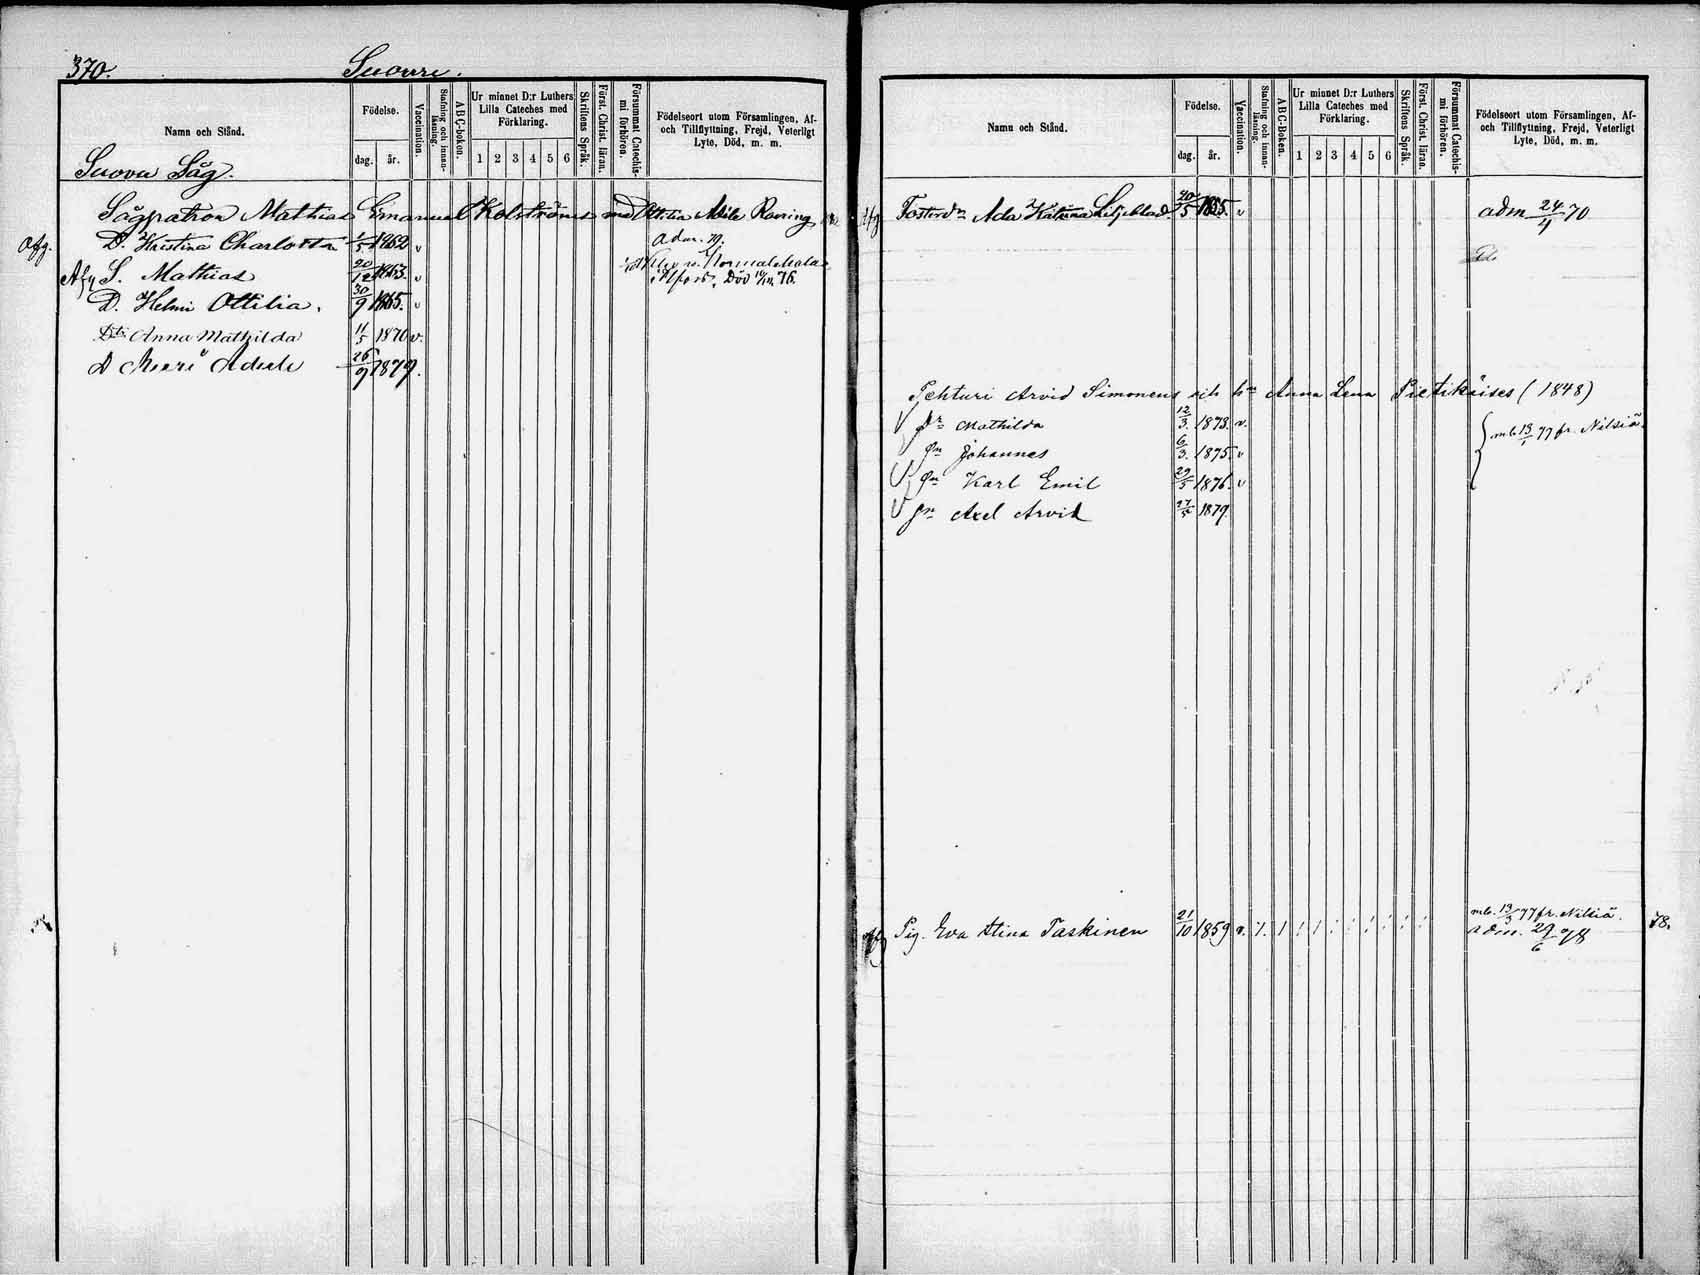 370.
Suovu.
Namn och Stånd.
Födelse.
dag.
år.
Vaccination.
Stafning och innan-
läsning.
ABC-bokon.
Ur minnet D:r Luthers
Lilla Cateches med
Förklaring.
1 2 3 4 5 6
Skriftens Språk.
Först. Christ. läran.
Försummat Catechis-
mi förhören.
Födelseort utom Församlingen, Af-
och Tillflyttning, Frejd, Veterligt
Lyte, Död, m. m.
Suovu Såg.
Sågpatron Mathias Emanuel Kolströms med Ottilia Adele Roering
Afg. D. Kristina Charlotta 1/5 1862 v adm. 79.
Afg S. Mathias 20/12 1863. v Normalskola
i Alfors. Död 76.
D. Helmi Ottilia. 30/9 1865. v
Dtr Anna Mathilda 11/5 1870 v.
D Meeri Adeele 26/9 1879.
Namn och Stånd.
Födelse.
dag.
år.
Vaccination.
Stafning och innan-
läsning.
ABC-Boken.
Ur minnet D:r Luthers
Lilla Cateches med
Förklaring.
1 2 3 4 5 6
Skriftens Språk.
Först. Christ. läran.
Försummat Catechis-
mi förhören.
Födelseort utom Församlingen, Af-
och Tillflyttning, Frejd, Veterligt
Lyte, Död, m. m.
Afg Fosterdr Ada Katrina Liljeblad 20/5 1855. v adm 24/4 70
Pehturi Arvid Simonens och hu Anna Lena Pietikäises (1848)
dr Mathilda 12/3. 1873. v. mb 13/1 77 fr. Nilsiä.
sn Johannes 6/3. 1875. v
sn Karl Emil 29/5 1876. v
sn Axel Arvid 27/5 1879.
afg Pig. Eva Stina Taskinen 21/10 1859 v. mb. 13/3 77 fr. Nilsiä.
adm. 29/6 78
78.